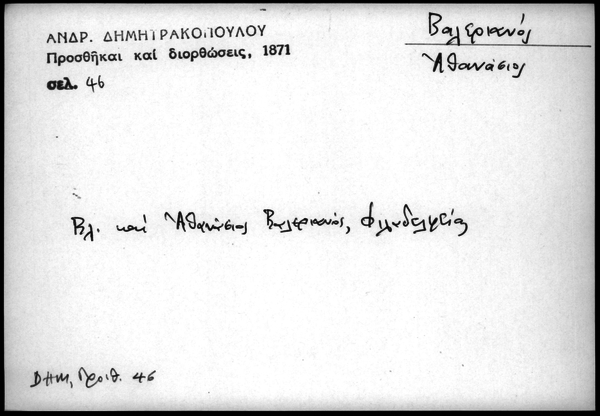 ΑΝΔΡ. ΔΗΜΗΤΡΑΚΟΠΟΥΛΟΥ
Προσθῆκαι καὶ διορθώσεις, 1871
σελ. 46
Βαλεριανός
Ἀθανάσιος
Βλ. καί Ἀθανάσιος Βαλεριανός, Φιλαδελφείας
ΔΗΜ, Προσθ. 46